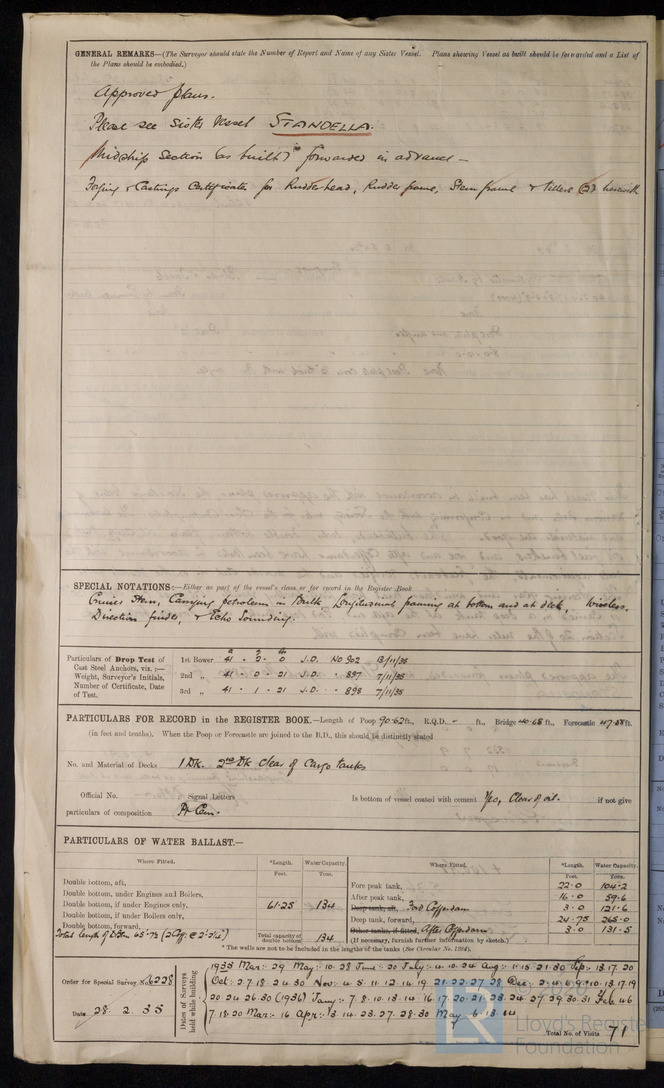 GENERAL REMARKS—(The Surveyor should state the Number of Report and Name of any Sister Vessel. Plans showing Vessel as built should be forwarded and a List of
the Plans should be embodied.)
Approved plans.
Please see Sister Vessel STANDELLA.
Midship Section (as built) forwarded in advance —
Forging & Castings Certificates for Rudderhead, Rudder frame, Stern frame & Tillers herewith
SPECIAL NOTATIONS:—Either as part of the vessel's class or for record in the Register Book
Cruiser Stern, Carrying petroleum in Bulk, Longitudinal framing at bottom and at deck, Wireless,
Direction finder, & Echo Sounding.
Particulars of Drop Test of
Cast Steel Anchors, viz. :—
Weight, Surveyor's Initials,
Number of Certificate, Date
of Test.
1st Bower 41 - 2 - 0 J.D. No 902 13/11/35
2nd „ 41 - 0 - 21 J.D. - 897 7/11/35
3rd „ 41 - 1 - 21 J.D. - 898 7/11/35
PARTICULARS FOR RECORD in the REGISTER BOOK.—Length of Poop 90.62 ft., R.Q.D. - ft., Bridge 40.68 ft., Forecastle 47.88 ft.
(in feet and tenths). When the Poop or Forecastle are joined to the B.D., this should be distinctly stated
No. and Material of Decks 1 Dk. 2nd Dk clear of Cargo tanks
Official No. Signal Letters Is bottom of vessel coated with cement Yes, Clear of oil. if not give
particulars of composition Pt Cem.
PARTICULARS OF WATER BALLAST.—
Where Fitted. *Length. Water Capacity.
Feet. Tons.
Double bottom, aft,
Double bottom, under Engines and Boilers,
Double bottom, if under Engines only, 61.25 134
Double bottom, if under Boilers only,
Double bottom, forward,
Total capacity of double bottom 134
Where Fitted. *Length. Water Capacity.
Feet. Tons.
Fore peak tank, 22.0 104.2
After peak tank, 16.0 59.6
Deep tank, aft, Ford Cofferdam 3.0 121.6
Deep tank, forward, 24.75 265.0
Other tanks, if fitted, After Cofferdam 3.0 131.5
(If necessary, furnish further information by sketch.)
* The wells are not to be included in the lengths of the tanks (See Circular No. 1284).
Order for Special Survey No. 6228
Date 28. 2. 35
Dates of Surveys held while building
1935 Mar: 29 May: 10. 28 June: 20 July: 4. 10. 24 Aug: 1. 13. 21. 30 Sep: 13. 17. 20
Oct: 2. 7. 18. 24. 30 Nov: 4. 5. 11. 12. 14. 19. 21. 22. 27. 28 Dec: 2. 4. 6. 9. 10. 13. 17. 19
20. 24. 26. 30 (1936) Jany: 7. 8. 10. 13. 14. 16. 17. 20. 21. 23. 24. 27. 29. 30. 31 Feb 4 6
7. 18. 20 Mar: 16 Apr: 3. 14. 23. 27. 28. 30 May 6. 13. 14
Total No. of Visits 71
LR
Lloyd's Register
Foundation